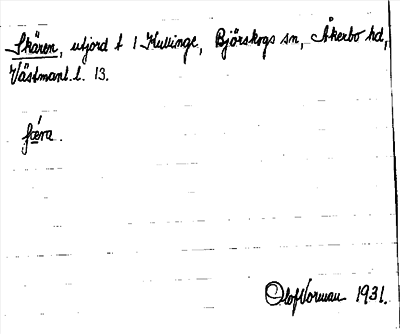 Skären, utjord t 1 Kullinge, Björskogs sn, Åkerbo hd,
Västmanl. l. 13.
Olof Vorman 1931.